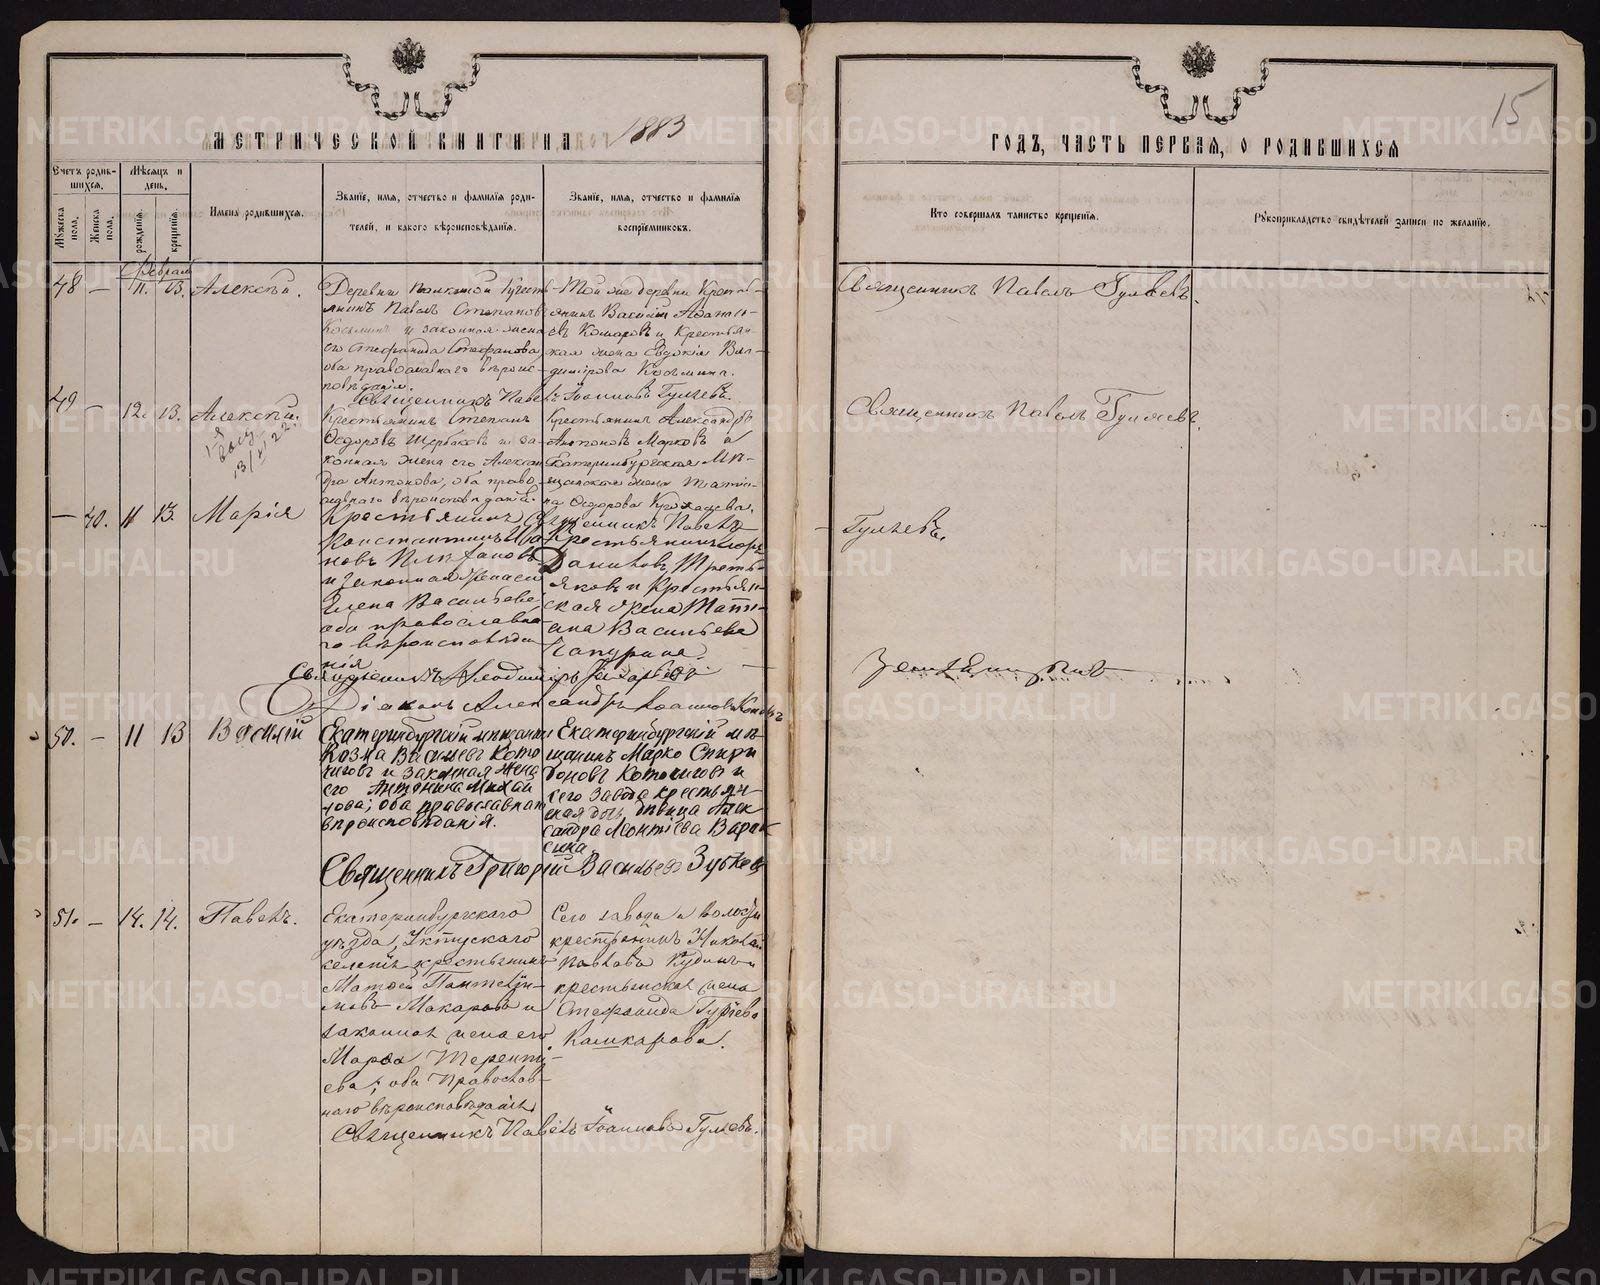 МЕТРИЧЕСКОЙ КНИГИ НА 1883
ГОДЪ, ЧАСТЬ ПЕРВАЯ, О РОДИВШИХСЯ
15
Счетъ родив-
шихся.
Мужеска пола.
Женска пола.
Мѣсяцъ и
день.
рожденія.
крещенія.
Имена родившихся.
Званіе, имя, отчество и фамилія роди-
телей, и какого вѣроисповѣданія.
Званіе, имя, отчество и фамилія
воспріемниковъ.
Кто совершалъ таинство крещенія.
Рукоприкладство свидѣтелей записи по желанію.
Февраль
48 — 11. 13. Алексѣй.
Деревни
янинъ Павелъ Степановъ
Косьминъ и законная жена
его Стефанида Стефанова,
оба православнаго вѣроис-
повѣданія.
Той же деревни Кресть-
янинъ Василій Аѳанась-
евъ Комаровъ и Крестьян-
ская жена Евдокія Вла-
димірова Косьмина.
Священникъ Павелъ Гуляевъ.
Священникъ Павелъ Іоанновъ Гуляевъ.
49 — 12. 13. Алексѣй.
13/ 22
Крестьянинъ Степанъ
Ѳедоровъ Щербаковъ и за-
конная жена его Алексан-
дра Антонова, оба право-
славнаго вѣроисповѣданія.
Крестьянинъ Александръ
Антоновъ Марковъ и
Екатеринбургская Мѣ-
щанская жена Татіа-
на Ѳедорова
Священникъ Павелъ Гуляевъ.
— 40. 11 13. Марія
Крестьянинъ
Константинъ Ива-
новъ Плотановъ
и законная жена его
Елена Васильева,
оба православна-
го вѣроисповѣда-
нія
Священникъ Павелъ
Гуляевъ.
Крестьянинъ
Даниловъ Треть-
яковъ и Крестьян-
ская жена Татіа-
на Васильева
Чапурина.
Священникъ Владиміръ
Діаконъ Александръ Іоанновъ
50. — 11 13 Василій
Екатеринбургскій мѣщанинъ
Козма Васильевъ Кото-
чиговъ и законная жена
его Антонина Михай-
лова; оба православнаго
вѣроисповѣданія.
Екатеринбургскій мѣ-
щанинъ Марко Спири-
доновъ Коточиговъ и
сего завода крестьян-
ская дочь дѣвица Алек-
сандра Леонтіева Варак-
сина.
Священникъ Григорій Васильевъ Зубковъ
51. — 14. 14. Павелъ.
Екатеринбургскаго
уѣзда, Уктусскаго
селенія крестьянинъ
Матѳей Пантелей-
моновъ Макаровъ и
законная жена его
Марѳа Теренті-
ева; оба Православ-
наго вѣроисповѣданія
Сего завода и волости
крестьянинъ Николай
Павловъ Кудинъ и
крестьянская жена
Стефанида Гуріева
Кашкарова.
Священникъ Павелъ Іоанновъ Гуляевъ.
METRIKI.GASO-URAL.RU